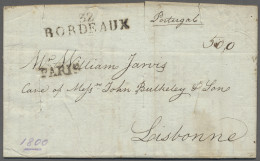 32
BORDEAUX
Portugal
500
Mr. William Jarvis
PARIS
Care of Messrs John Bulkeley & Son
Lisbonne
1800